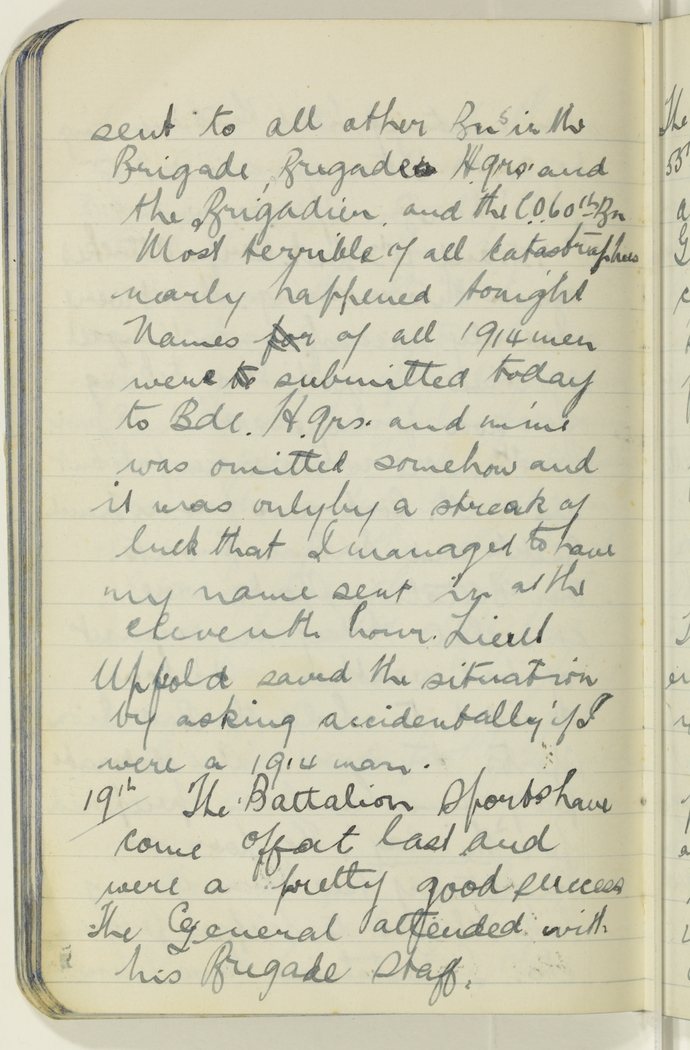 sent to all other Bns in the
Brigade, Brigade Hqrs. and
the Brigadier. and the C.O. 60th Bn
Most terrible of all katastrophies
nearly happened tonight
Names for of all 1914 men
were to submitted today
to Bde. Hqrs. and mine
was omitted somehow and
it was only by a streak of
luck that I managed to have
my name sent in at the
eleventh hour. Lieut
Upfold saved the situation
by asking accidentally if I
were a 1914 man.
19th The Battalion Sports have
come off at last and
were a pretty good success
The General attended with
his Brigade Staff.
The
55th